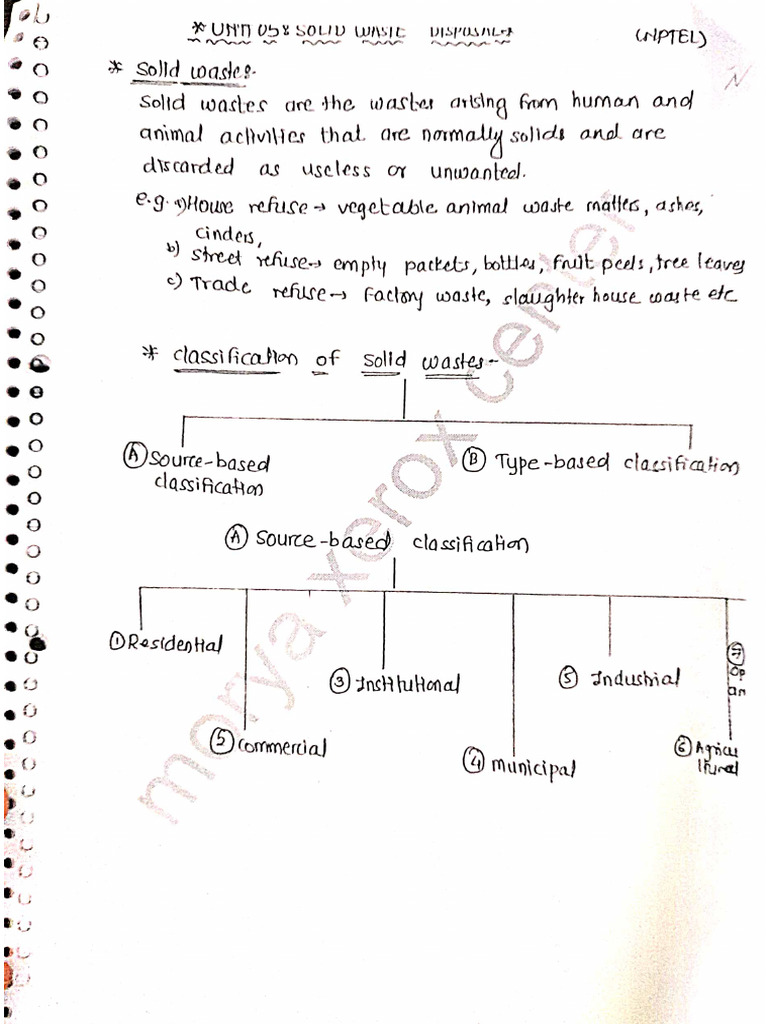 * UNIT 05: SOLID WASTE DISPOSAL *
(NPTEL)
* Solid wastes-
Solid wastes are the wastes arising from human and
animal activities that are normally solids and are
discarded as useless or unwanted.
e.g. a) House refuse → vegetable animal waste matters, ashes,
cinders,
b) street refuse → empty packets, bottles, fruit peels, tree leaves
c) Trade refuse → Factory waste, slaughter house waste etc
* classification of solid wastes-
(A) Source-based
classification
(B) Type-based classification
(A) Source-based classification
(1) Residential
(5) commercial
(3) Institutional
(4) municipal
(5) Industrial
(6) Agricu
ltural
(7)
op
an
morya xerox center